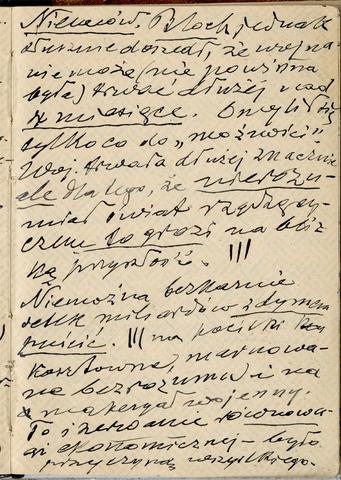 Niemców. Bloch jednak
słusznie doszedł, że wojna
nie może (nie powinna
była) trwać dłużej nad
4 miesiące. Omylił się
tylko co do "możności"
Woj. trwała dłużej znacznie
ale dlatego, że nierozu-
miał świat rządzący
czem to grozi na bliz
ką przyszłość. |||
Niemożna bezkarnie
setek miliardów z dymem
puścić. ||| na pociski
kosztowne, marnowa-
ne bezrozumu) i na
materyał wojenny.
To zerwanie równowa-
gi ekonomicznej – było
przyczyną wszystkiego.